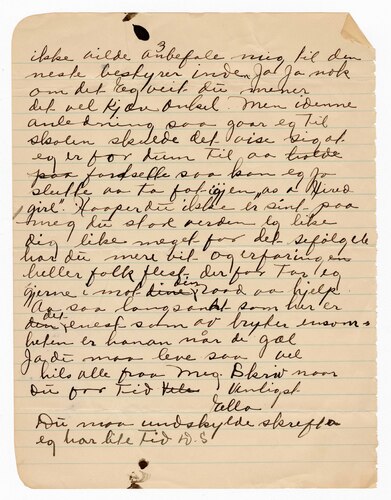 3
ikke vilde anbefale mig til den
neste bestyrer inden. Ja Ja nok
om det eg veit du mener
det vel kjære onkel. Men i denne
anledning saa gaar eg til
skolen skulde det vise sig at
eg er for dum til aa holde
paa fordselle saa kan eg jo
slutte aa ta fat igjen "as a Hired
girl". Haaper du ikke er sint paa
meg du stod verden eg like
dig like meget for det selfølgele
har du mere vit og erfaring en
heller folk flest derfor tar eg
gjerne i mot din raad aa hjelp
Aa saa langsomt som her er
den det eneste som av bryter ensom-
heten er hanan naar de gæl
Ja du maa leve saa vel
hils alle fraa meg Skriv naar
Du faar Tid Venligst
Ella
Du maa undskylde skrefta
eg har lite tid D.S